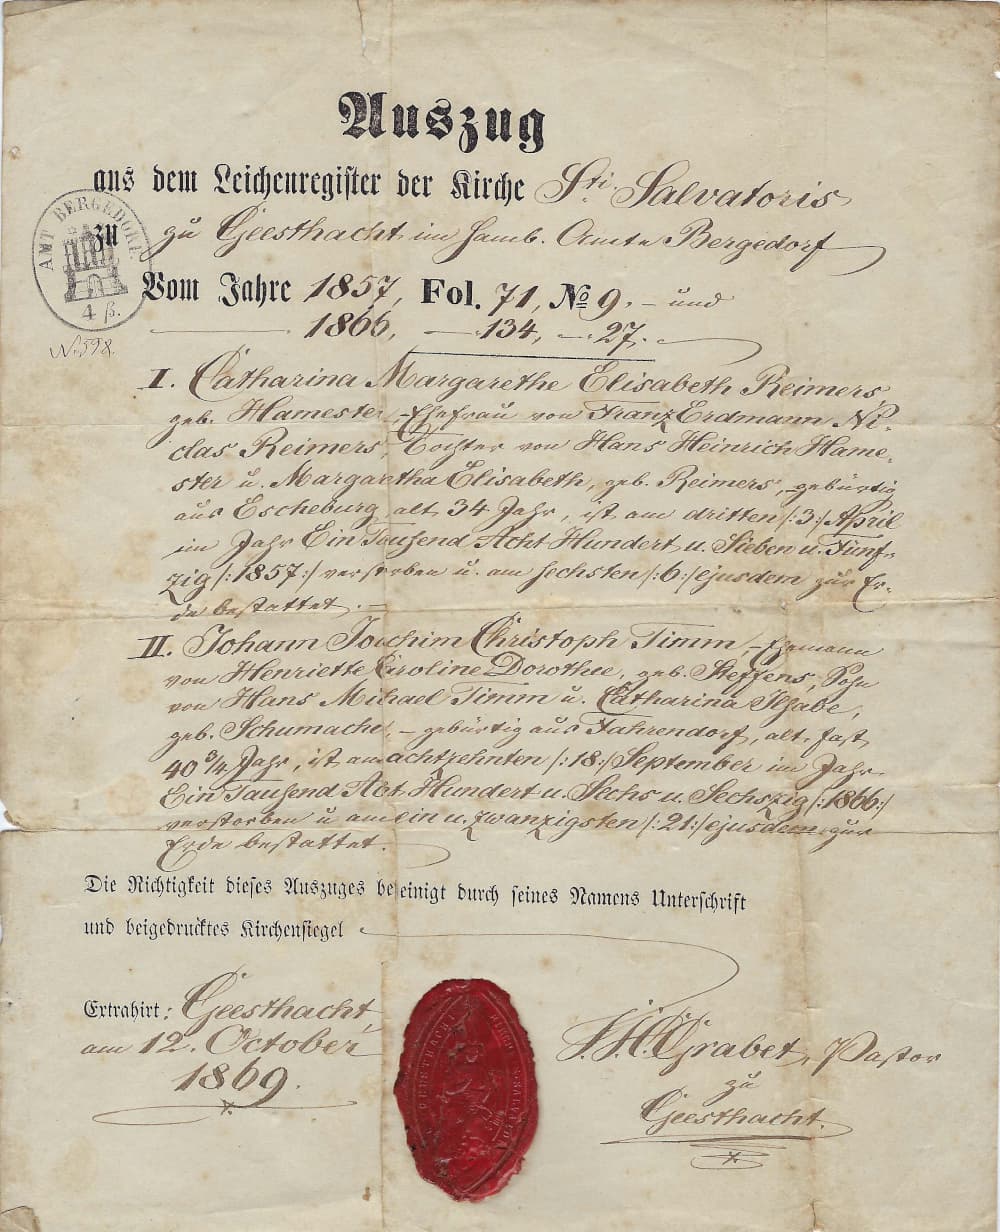 Auszug
aus dem Leichenregister der Kirche Sti. Salvatoris
zu zu Geesthacht im Hamb. Amte Bergedorf
AMT BERGEDORF.
4 ß.
Vom Jahre 1857, Fol. 71, No 9. – und
1866, — 134, — 27.
No. 598.
I. Catharina Margarethe Elisabeth Reimers,
geb. Hamester, Ehefrau von Franz Erdmann Ni-
clas Reimers, Tochter von Hans Heinrich Hame-
ster u. Margaretha Elisabeth, geb. Reimers, gebürtig
aus Escheburg, alt 34 Jahr, ist am dritten /:3:/ April
im Jahr Ein Tausend Acht Hundert u. Sieben u. Fünf-
zig /:1857:/ verstorben u. am sechsten /:6:/ ejusdem zur Er-
de bestattet. –
II. Johann Joachim Christoph Timm, Ehemann
von Henriette Caroline Dorothee, geb. Steffens, Sohn
von Hans Michael Timm u. Catharina Ilsabe,
geb. Schumacher, – gebürtig aus Fahrendorf, alt fast
40 3/4 Jahr, ist am achtzehnten /:18:/ September im Jahr
Ein Tausend Acht Hundert u. Sechs u. Sechszig /:1866:/
verstorben u am ein u. zwanzigsten /:21:/ ejusdem zur
Erde bestattet.
Die Richtigkeit dieses Auszuges bescheinigt durch seines Namens Unterschrift
und beigedrucktes Kirchensiegel
Extrahirt: Geesthacht,
am 12. October
1869.
Grabet, Pastor
zu
Geesthacht.